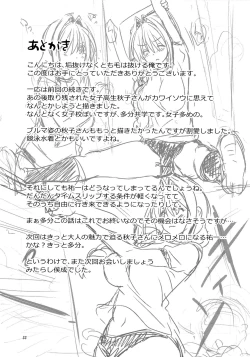 あとがき
こんにちは、垢抜けなくとも毛は抜ける俺です。
この度はお手にとっていただきありがとうございます。
一応は前回の続きです。
あの後取り残された女子高生秋子さんがカワイソウに思えて
なんとかしようと描きました。
なんとなく女子校ぽいですが、多分共学です。女子多めの。
ブルマ姿の秋子さんももっと描きたかったんですが割愛しました…
競泳水着とかもいいですよね。
それにしても祐一はどうなってしまってるんでしょうね。
だんだんタイムスリップする条件が軽くなってて
そのうち自由に行き来できるようになったりして。
まぁ多分この話はこれでお終いなのでその機会はなさそうですが…
次回はきっと大人の魅力で迫る秋子さんにメロメロになる祐一…
かな？きっと多分。
というわけで、また次回お会いしましょう
みたらし侯成でした。